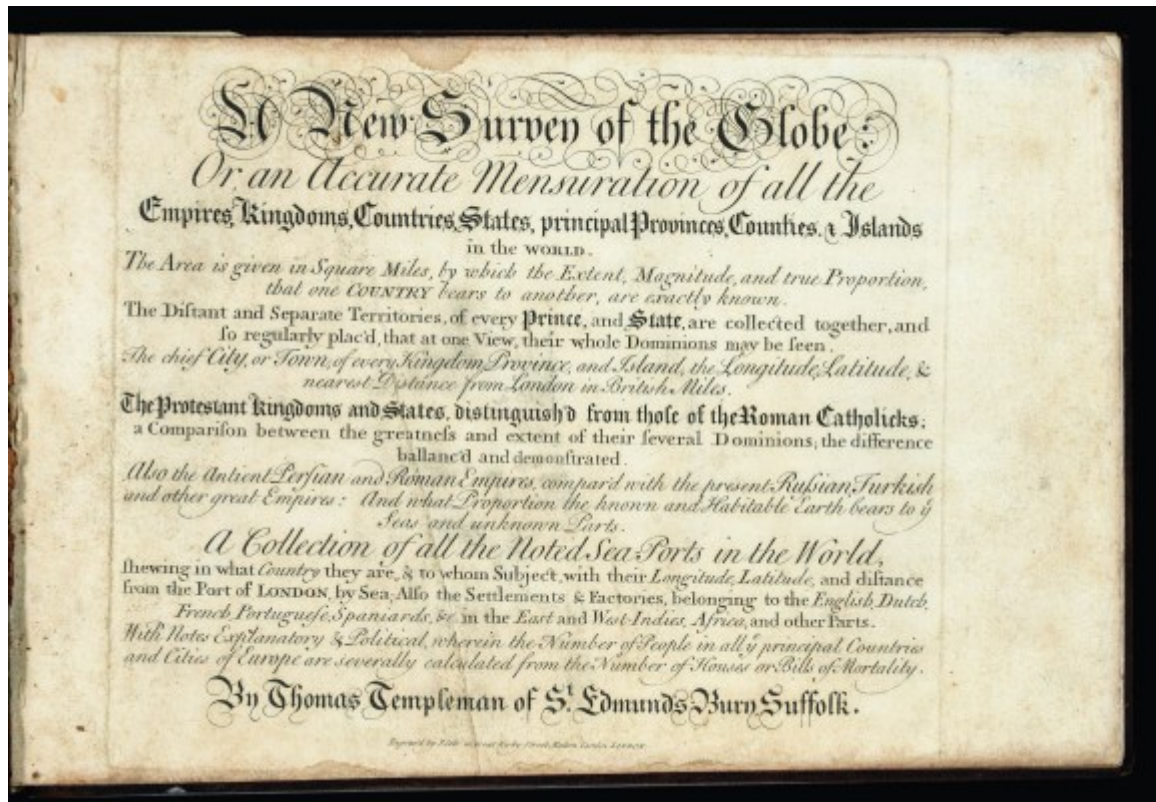 A New Survey of the Globe:
Or, an Accurate Mensuration of all the
Empires, Kingdoms, Countries, States, principal Provinces, Counties, & Islands
in the WORLD.
The Area is given in Square Miles, by which the Extent, Magnitude, and true Proportion,
that one COUNTRY bears to another, are exactly known.
The Diſtant and Separate Territories, of every Prince, and State, are collected together, and
ſo regularly plac'd, that at one View, their whole Dominions may be ſeen.
The chief City, or Town, of every Kingdom, Province, and Island, the Longitude, Latitude, &
nearest Distance from London in British Miles.
The Protestant Kingdoms and States, distinguish'd from thoſe of the Roman Catholicks;
a Compariſon between the greatneſs and extent of their ſeveral Dominions; the difference
ballanc'd and demonſtrated.
Also the Antient Perſian and Roman Empires, compar'd with the present Ruſsian, Turkish
and other great Empires: And what Proportion the known and Habitable Earth bears to ÿ
Seas and unknown Parts.
A Collection of all the Noted Sea Ports in the World,
ſhewing in what Country they are, & to whom Subject, with their Longitude, Latitude, and diſtance
from the Port of LONDON, by Sea; Alſo the Settlements & Factories, belonging to the English, Dutch,
French, Portugueſe, Spaniards, &c. in the East and West-Indies, Africa, and other Parts.
With Notes Explanatory & Political, wherein the Number of People in all ÿ principal Countries
and Cities of Europe are severally calculated from the Number of Houses or Bills of Mortality.
By Thomas Templeman of St. Edmunds Bury, Suffolk.
Engrav'd by